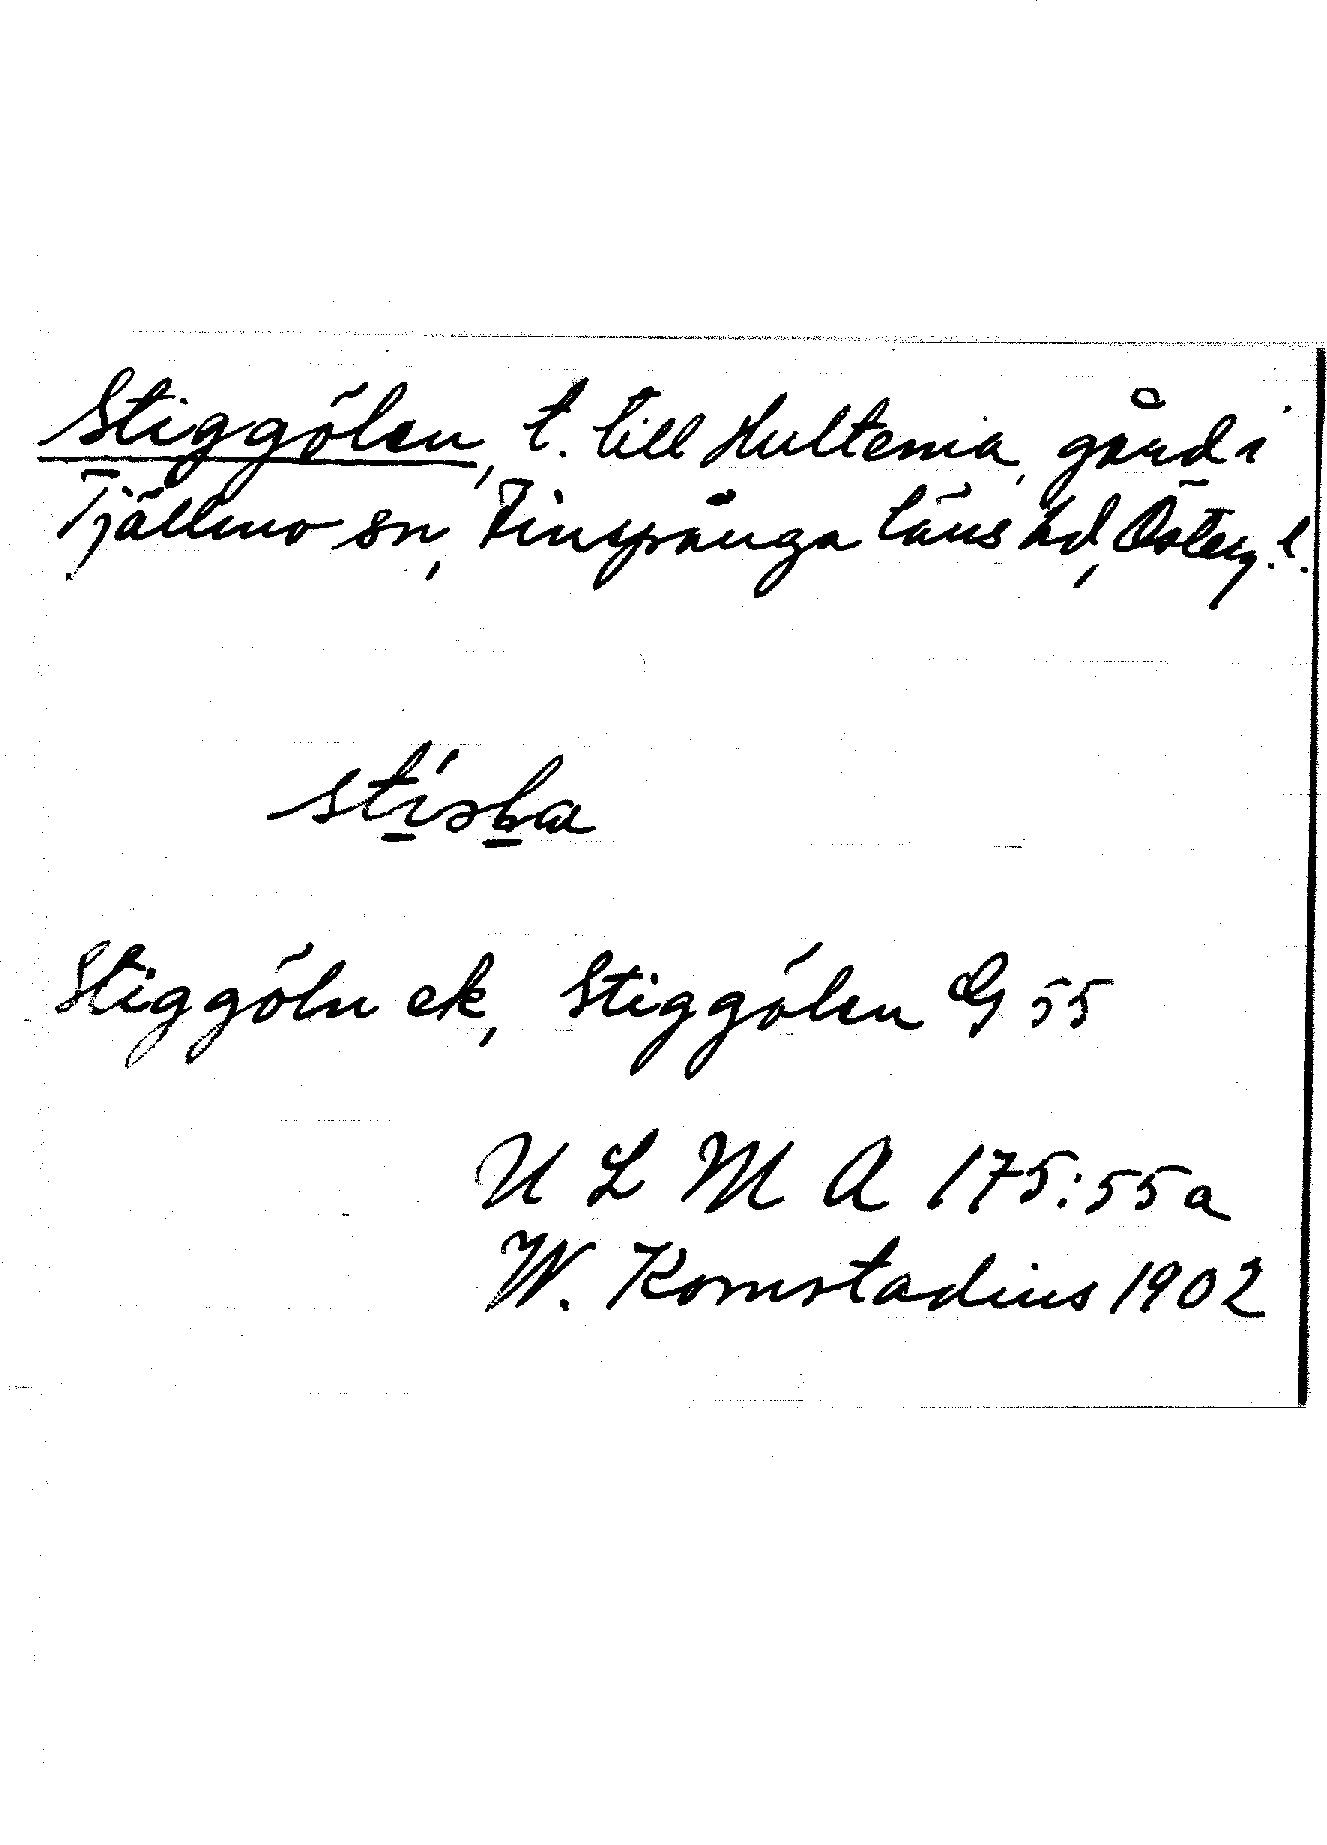 Stiggölen, t. till Hultema, gård i
Tjällmo sn, Finspånga läns hd, Österg. l.
Stiggöln ek, Stiggölen G 55
U L M A 175:55a
W. Komstadius 1902